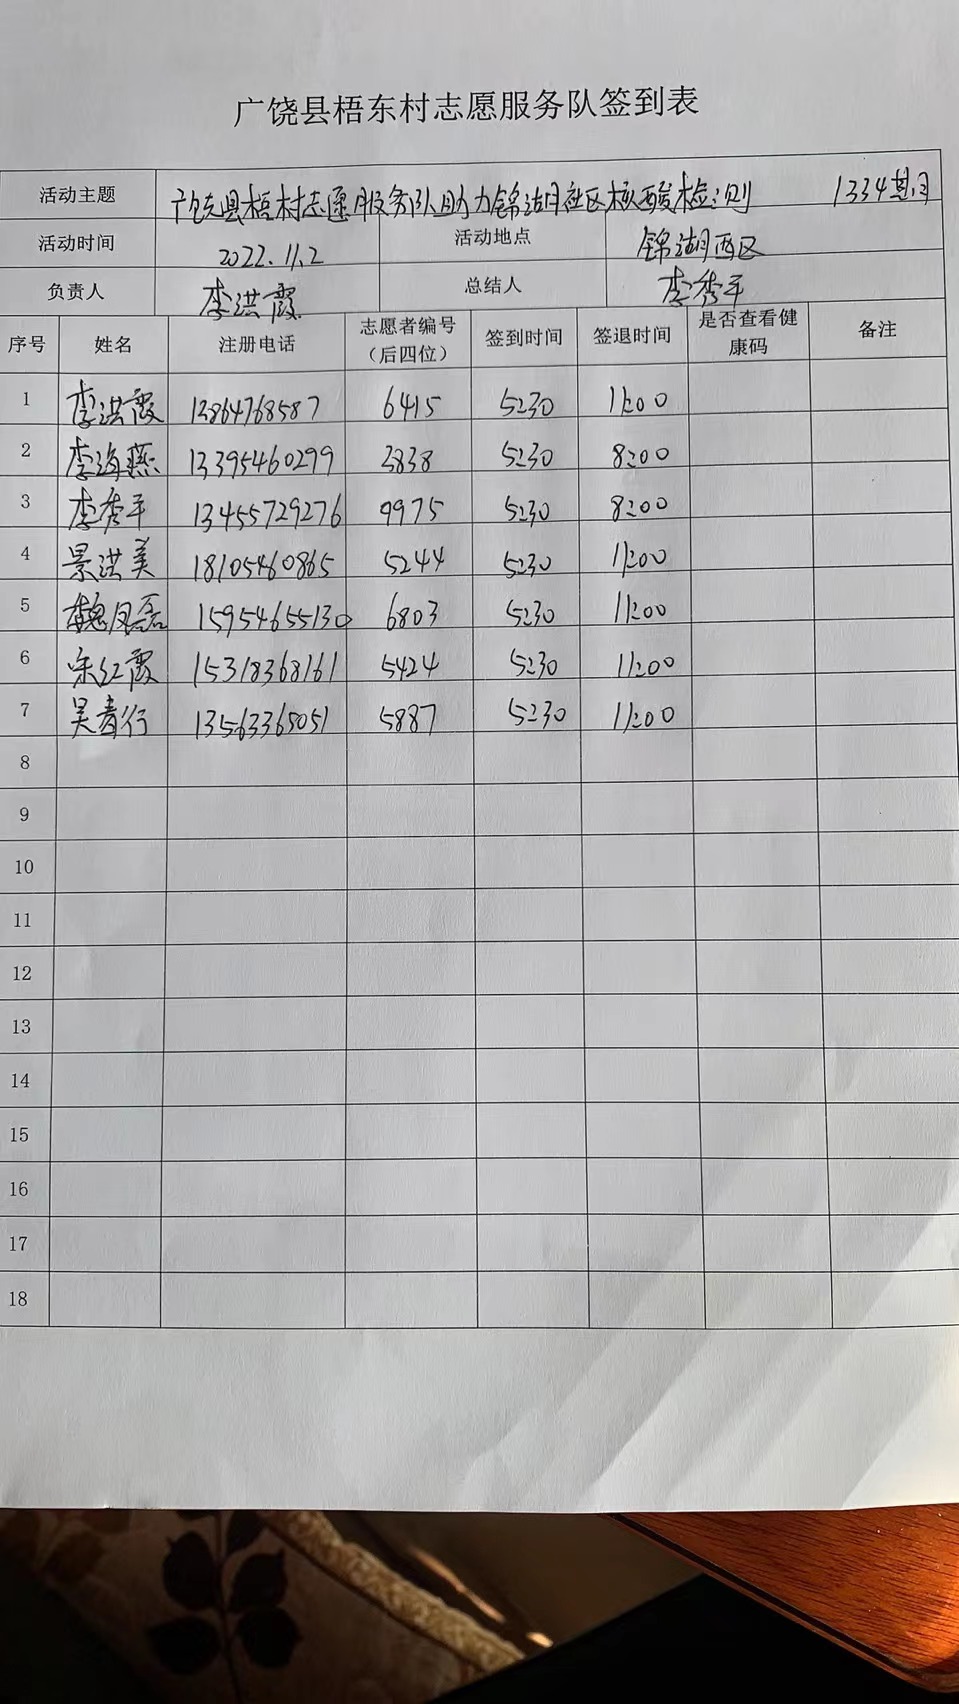 广饶县梧东村志愿服务队签到表
活动主题 广饶县梧村志愿服务队助力锦湖社区核酸检测 1334期
活动时间 2022.11.2 活动地点 锦湖西区
负责人 李洪霞 总结人 李秀平
序号 姓名 注册电话 志愿者编号（后四位） 签到时间 签退时间 是否查看健康码 备注
1 李洪霞 13864768587 6415 5:30 11:00
2 李海燕 13395460299 3838 5:30 8:00
3 李秀平 13455729276 9975 5:30 8:00
4 景洪美 18105460865 5244 5:30 11:00
5 魏凤磊 15954655130 6803 5:30 11:00
6 宋红霞 15318368161 5424 5:30 11:00
7 吴青行 13563365051 5887 5:30 11:00
8
9
10
11
12
13
14
15
16
17
18